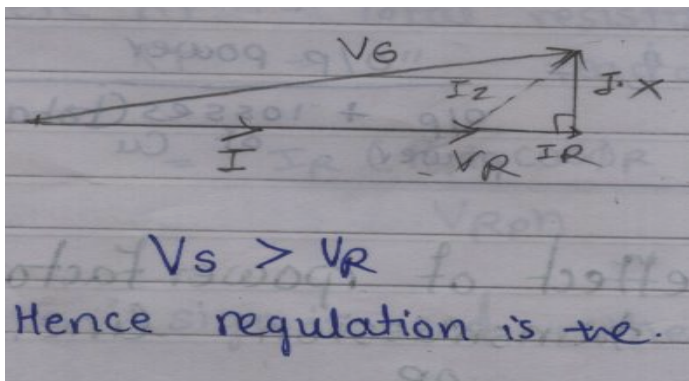 VS
IZ
I·X
I
VR
IR
Vs > VR
Hence regulation is +ve.